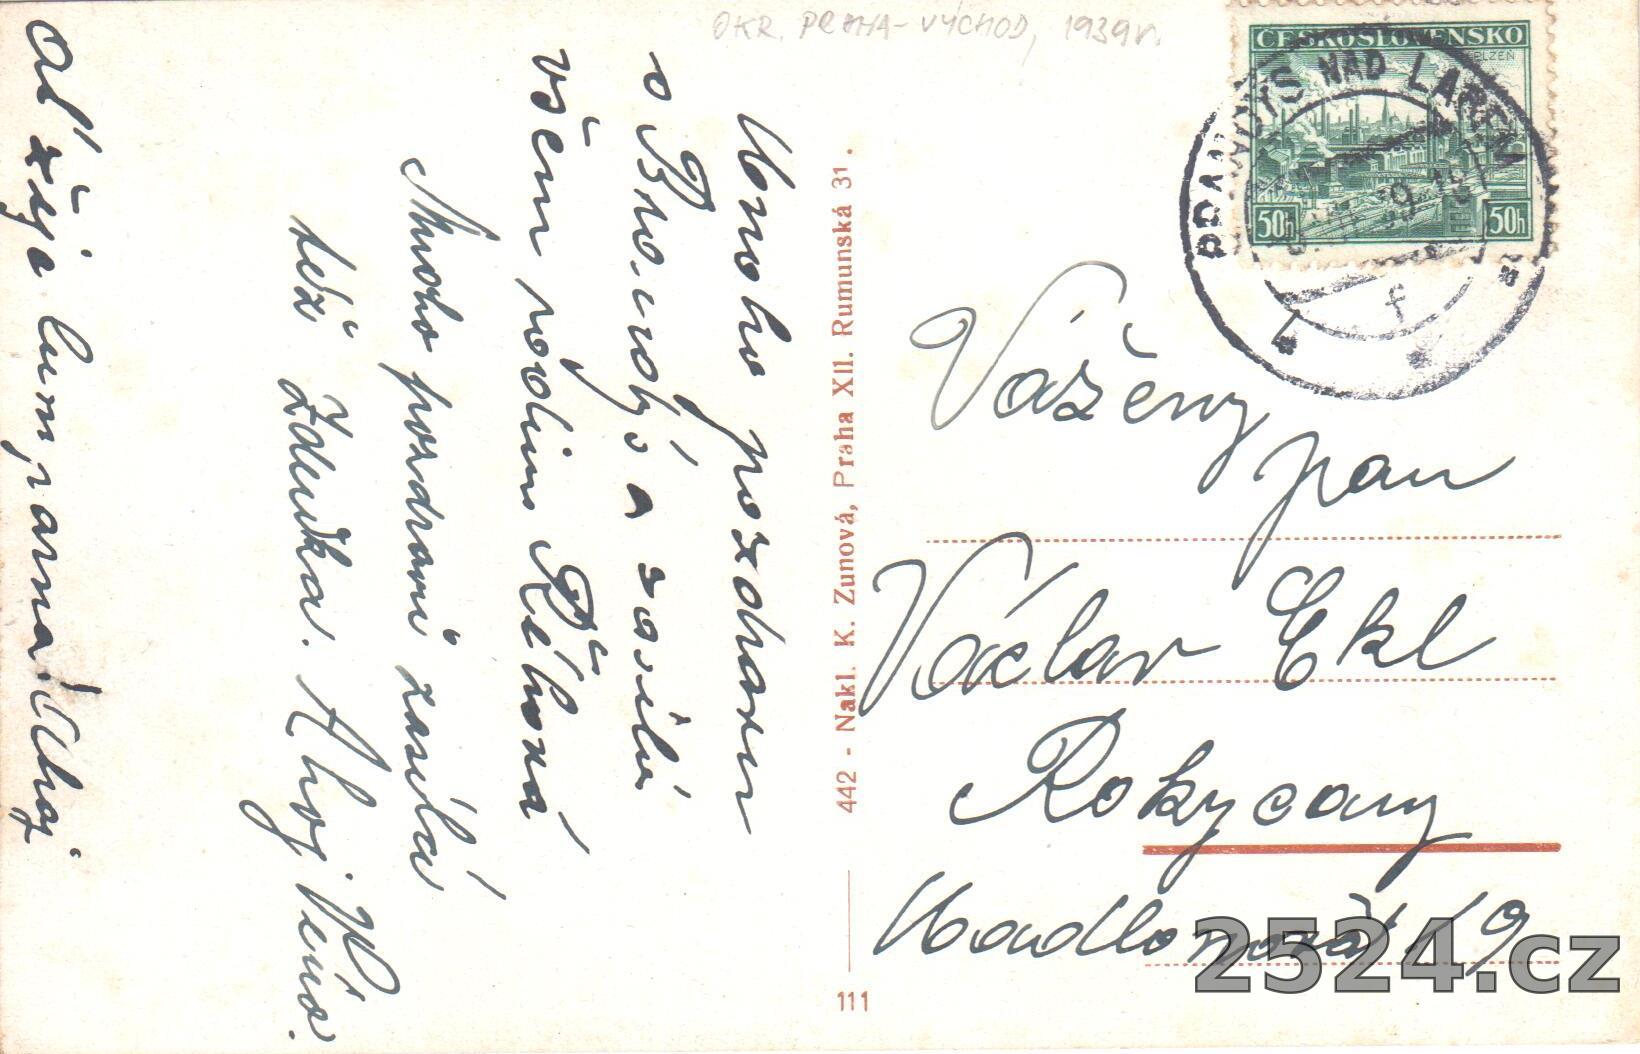 OKR. PRAHA-VÝCHOD, 1939 r.
ČESKOSLOVENSKO
PLZEŇ
50h 50h
BRANDÝS NAD LABEM
f
Mnoho pozdravů
z Brandýsa a zasílá
všem rodina Říhová
Mnoho pozdravů zasílá
též Zdeňka. Ahoj Věna.
Ať žije lumpárna! Ahoj
442 - Nakl. K. Zunová, Praha XII. Rumunská 31.
111
Vážený
pan
Václav Ekl
Rokycany
Madlonova 19
2524.cz